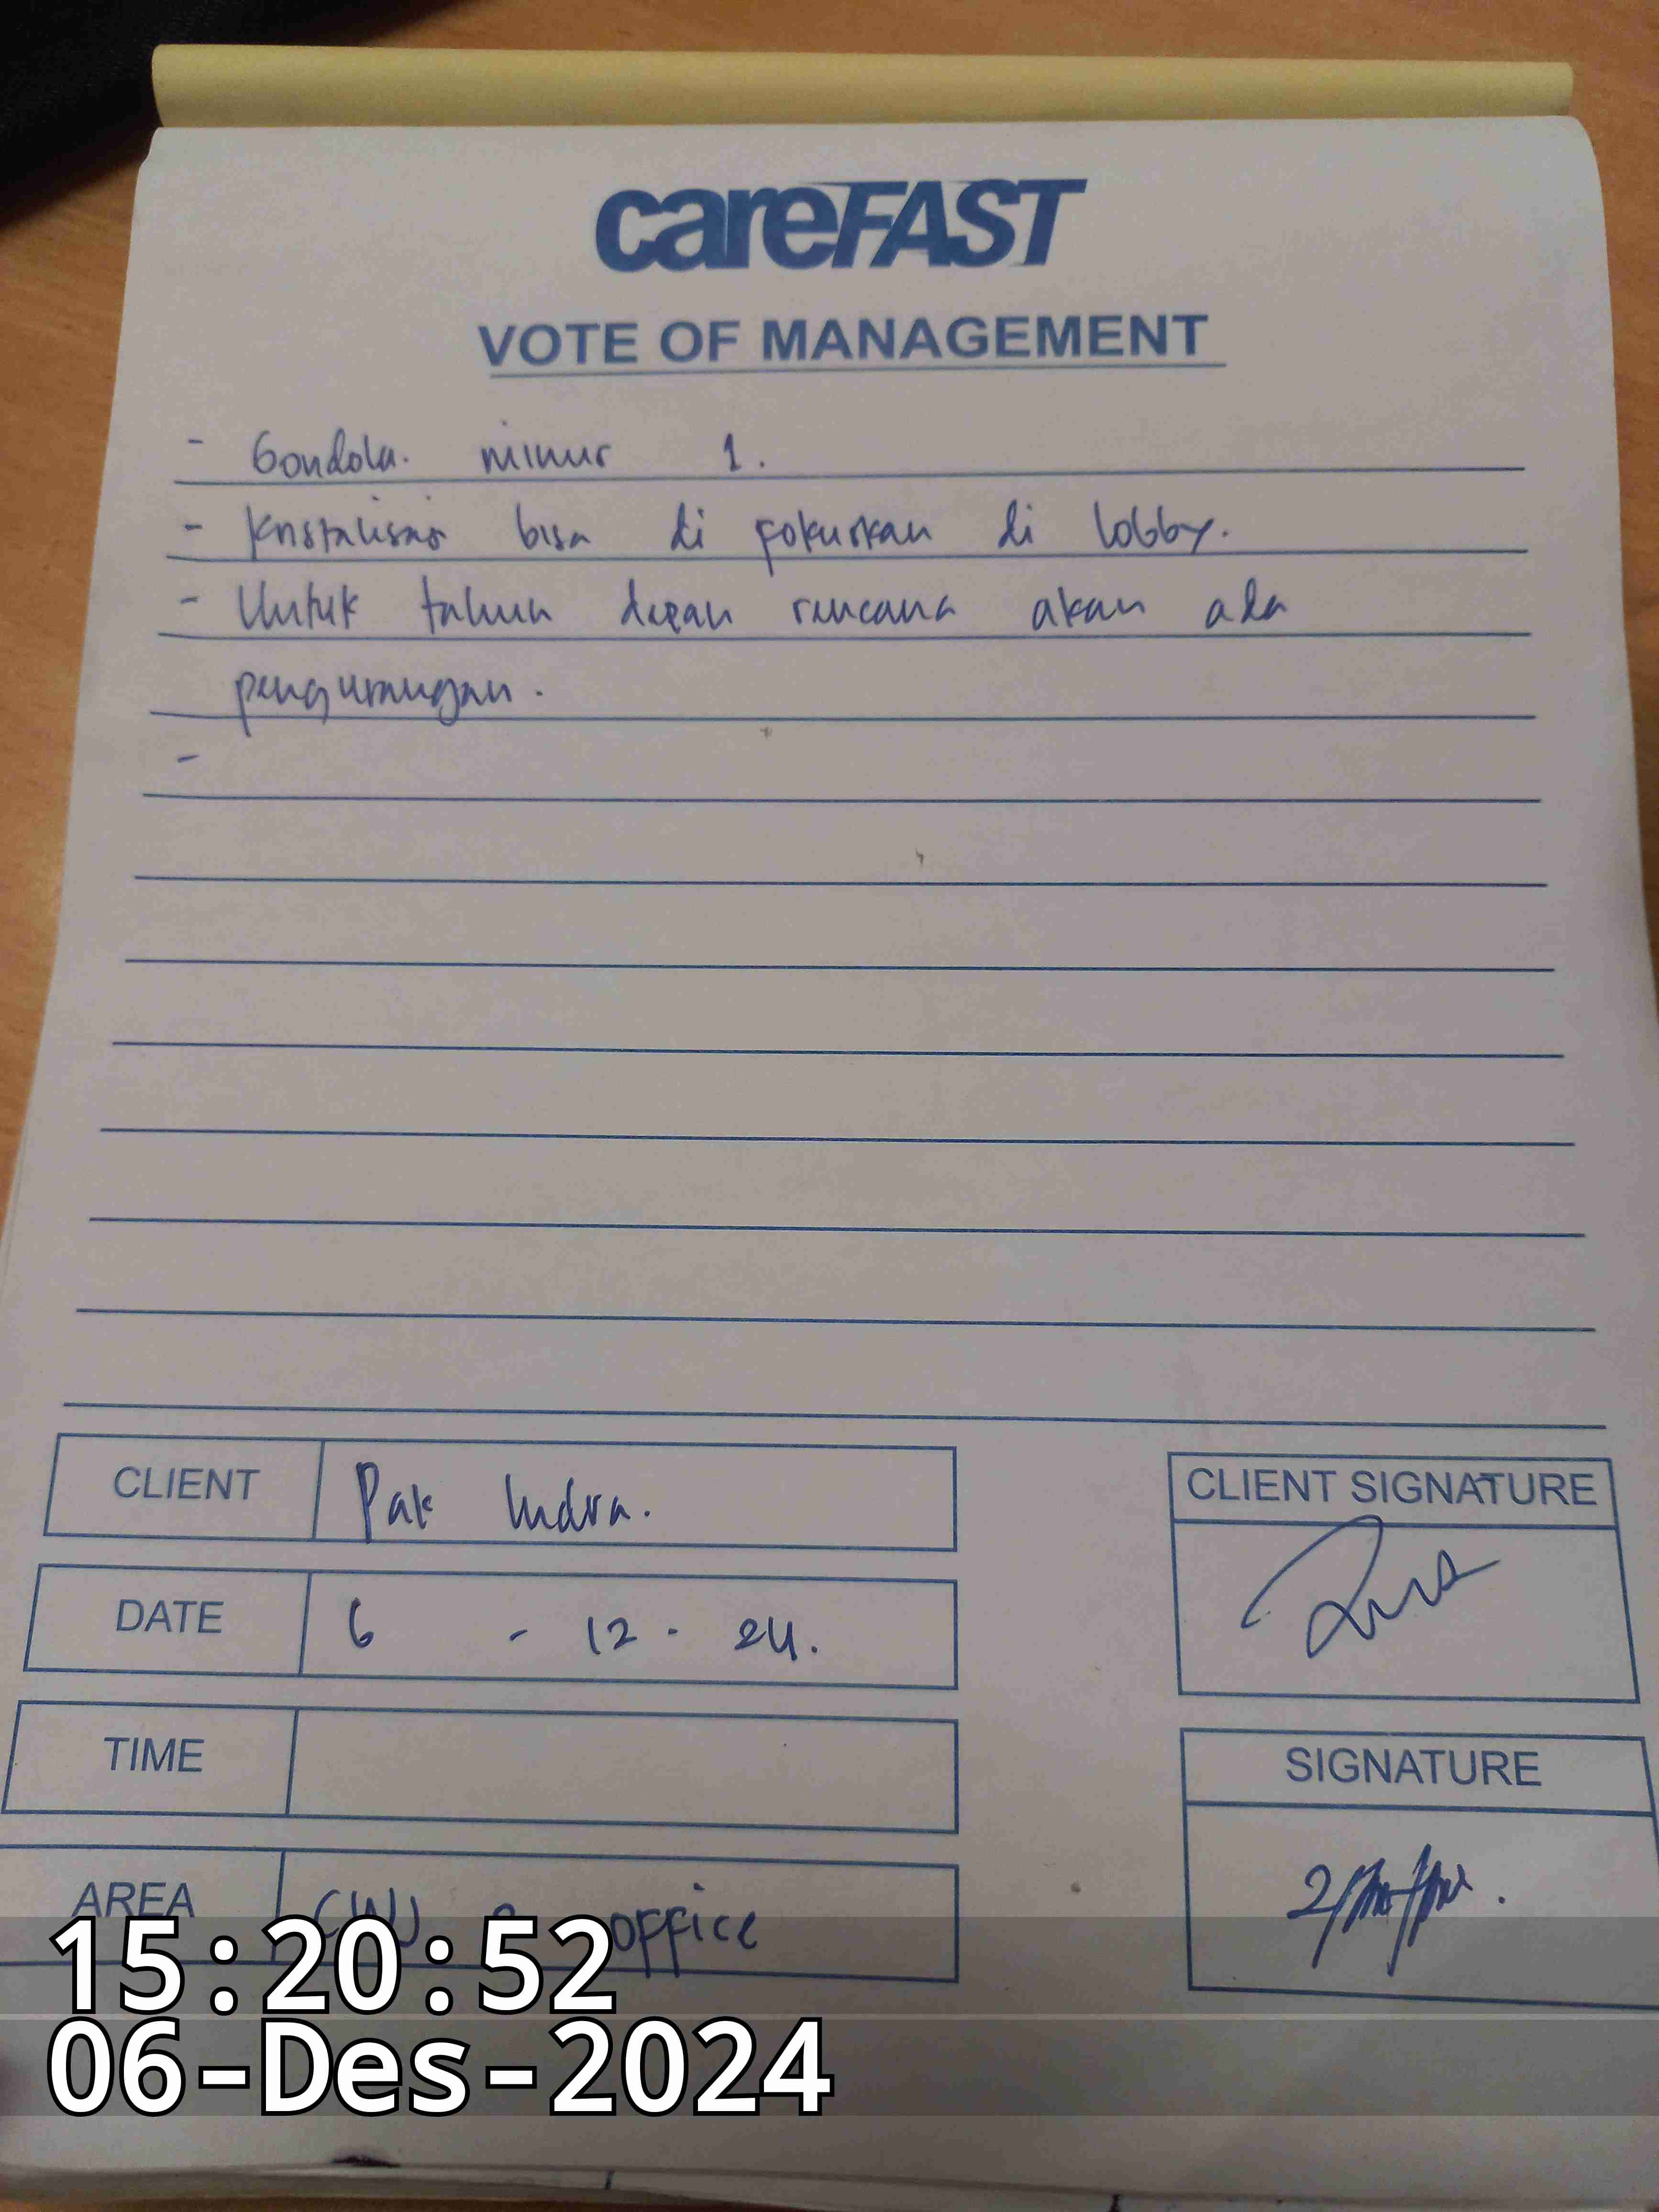 careFAST
VOTE OF MANAGEMENT
- Gondola. minus 1.
- Kristalisasi bisa di fokuskan di lobby.
- Untuk tahun depan rencana akan ada
pengurangan.
-
CLIENT Pak Indra.
CLIENT SIGNATURE
DATE 6 - 12 - 24.
TIME
SIGNATURE
AREA office
15:20:52
06-Des-2024